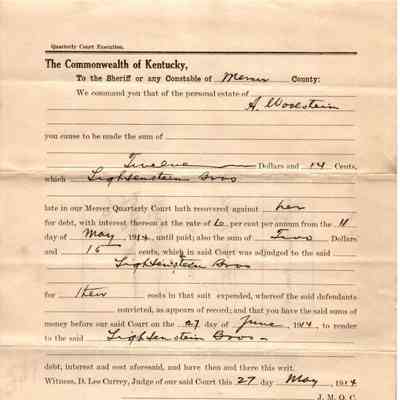 Quarterly Court Execution.
The Commonwealth of Kentucky,
To the Sheriff or any Constable of Mercer County:
We command you that of the personal estate of
A. Woolstein
you cause to be made the sum of
Twelve Dollars and 14 Cents,
which Lightenstein Bros
late in our Mercer Quarterly Court hath recovered against her
for debt, with interest thereon at the rate of 6 per cent per annum from the 11
day of May 1914 until paid; also the sum of Two Dollars
and 15 cents, which in said Court was adjudged to the said
Lightenstein Bros
for Their costs in that suit expended, whereof the said defendants
convicted, as appears of record; and that you have the said sums of
money before our said Court on the 27 day of June, 1914, to render
to the said Lightenstein Bros
debt, interest and cost aforesaid, and have then and there this writ.
Witness, D. Lee Currey, Judge of our said Court this 27 day May, 1914
J. M. Q. C.